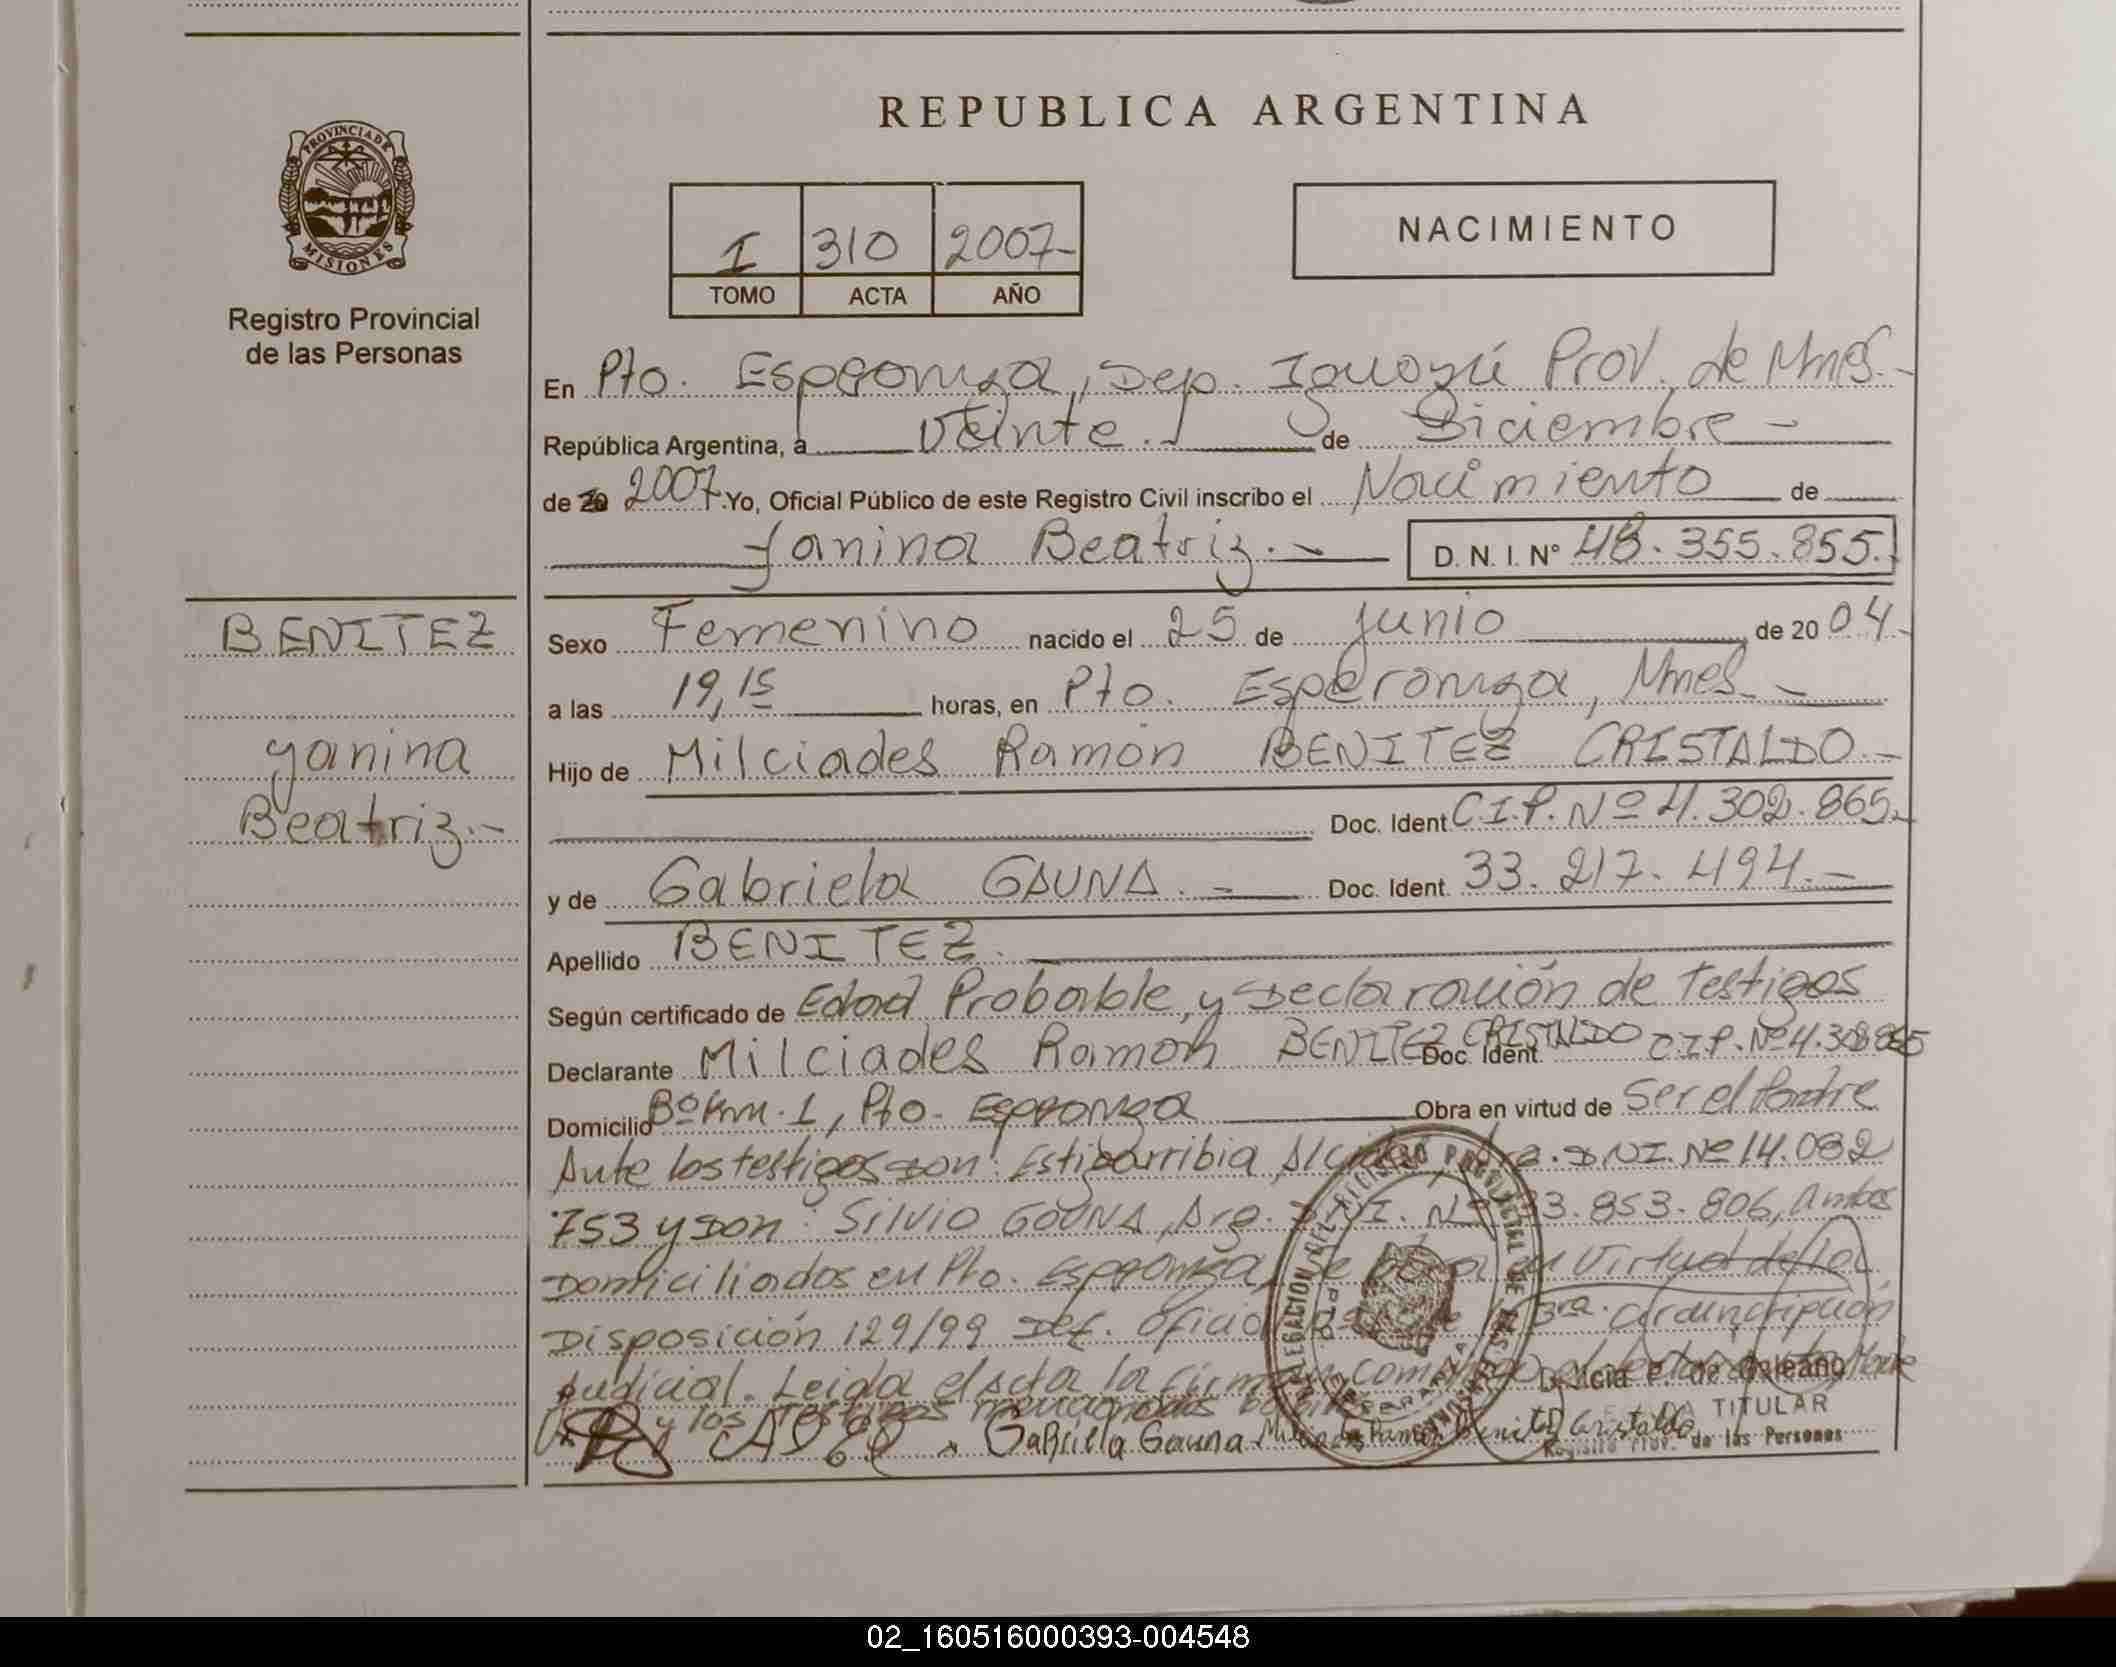 REPUBLICA ARGENTINA
PROVINCIA DE MISIONES
Registro Provincial
de las Personas
I 310 2007-
TOMO ACTA AÑO
NACIMIENTO
En Pto. Esperanza, Dep. Iguazú Prov. de Mnes.-
República Argentina, a Veinte. de Diciembre -
de 20 2007 Yo, Oficial Público de este Registro Civil inscribo el Nacimiento de
Yanina Beatriz.- D. N. I. N° 48.355.855.
BENITEZ
Yanina
Beatriz.-
Sexo Femenino nacido el 25 de Junio de 20 04.-
a las 19,15 horas, en Pto. Esperanza, Mnes.-
Hijo de Milciades Ramón BENITEZ CRISTALDO.-
Doc. Ident C.I.P. Nº 4.302.865.-
y de Gabriela GAUNA.- Doc. Ident. 33.217.494.-
Apellido BENITEZ.
Según certificado de Edad Probable, y Declaración de Testigos
Declarante Milciades Ramón BENITEZ CRISTALDO Doc. Ident. C.I.P. Nº 4.302.865
Domicilio Bº Km. 1, Pto. Esperanza Obra en virtud de Ser el Padre
Ante los testigos Don: Estigarribia, Arg. DNI. Nº 14.082
753 y Don: Silvio GAUNA, Arg. DNI. Nº 33.853.806, ambos
Domiciliados en Pto. Esperanza, se obra en Virtud de la
Disposición 129/99 Def. Oficial de la 3ra. Circunscripción
Judicial. Leida el acta la firman conmigo el declarante
y los Testigos mencionados
Gabriela Gauna Milciades Ramon Benitez Cristaldo
P. de Galeano
TITULAR
Registro Prov. de las Personas
02_160516000393-004548